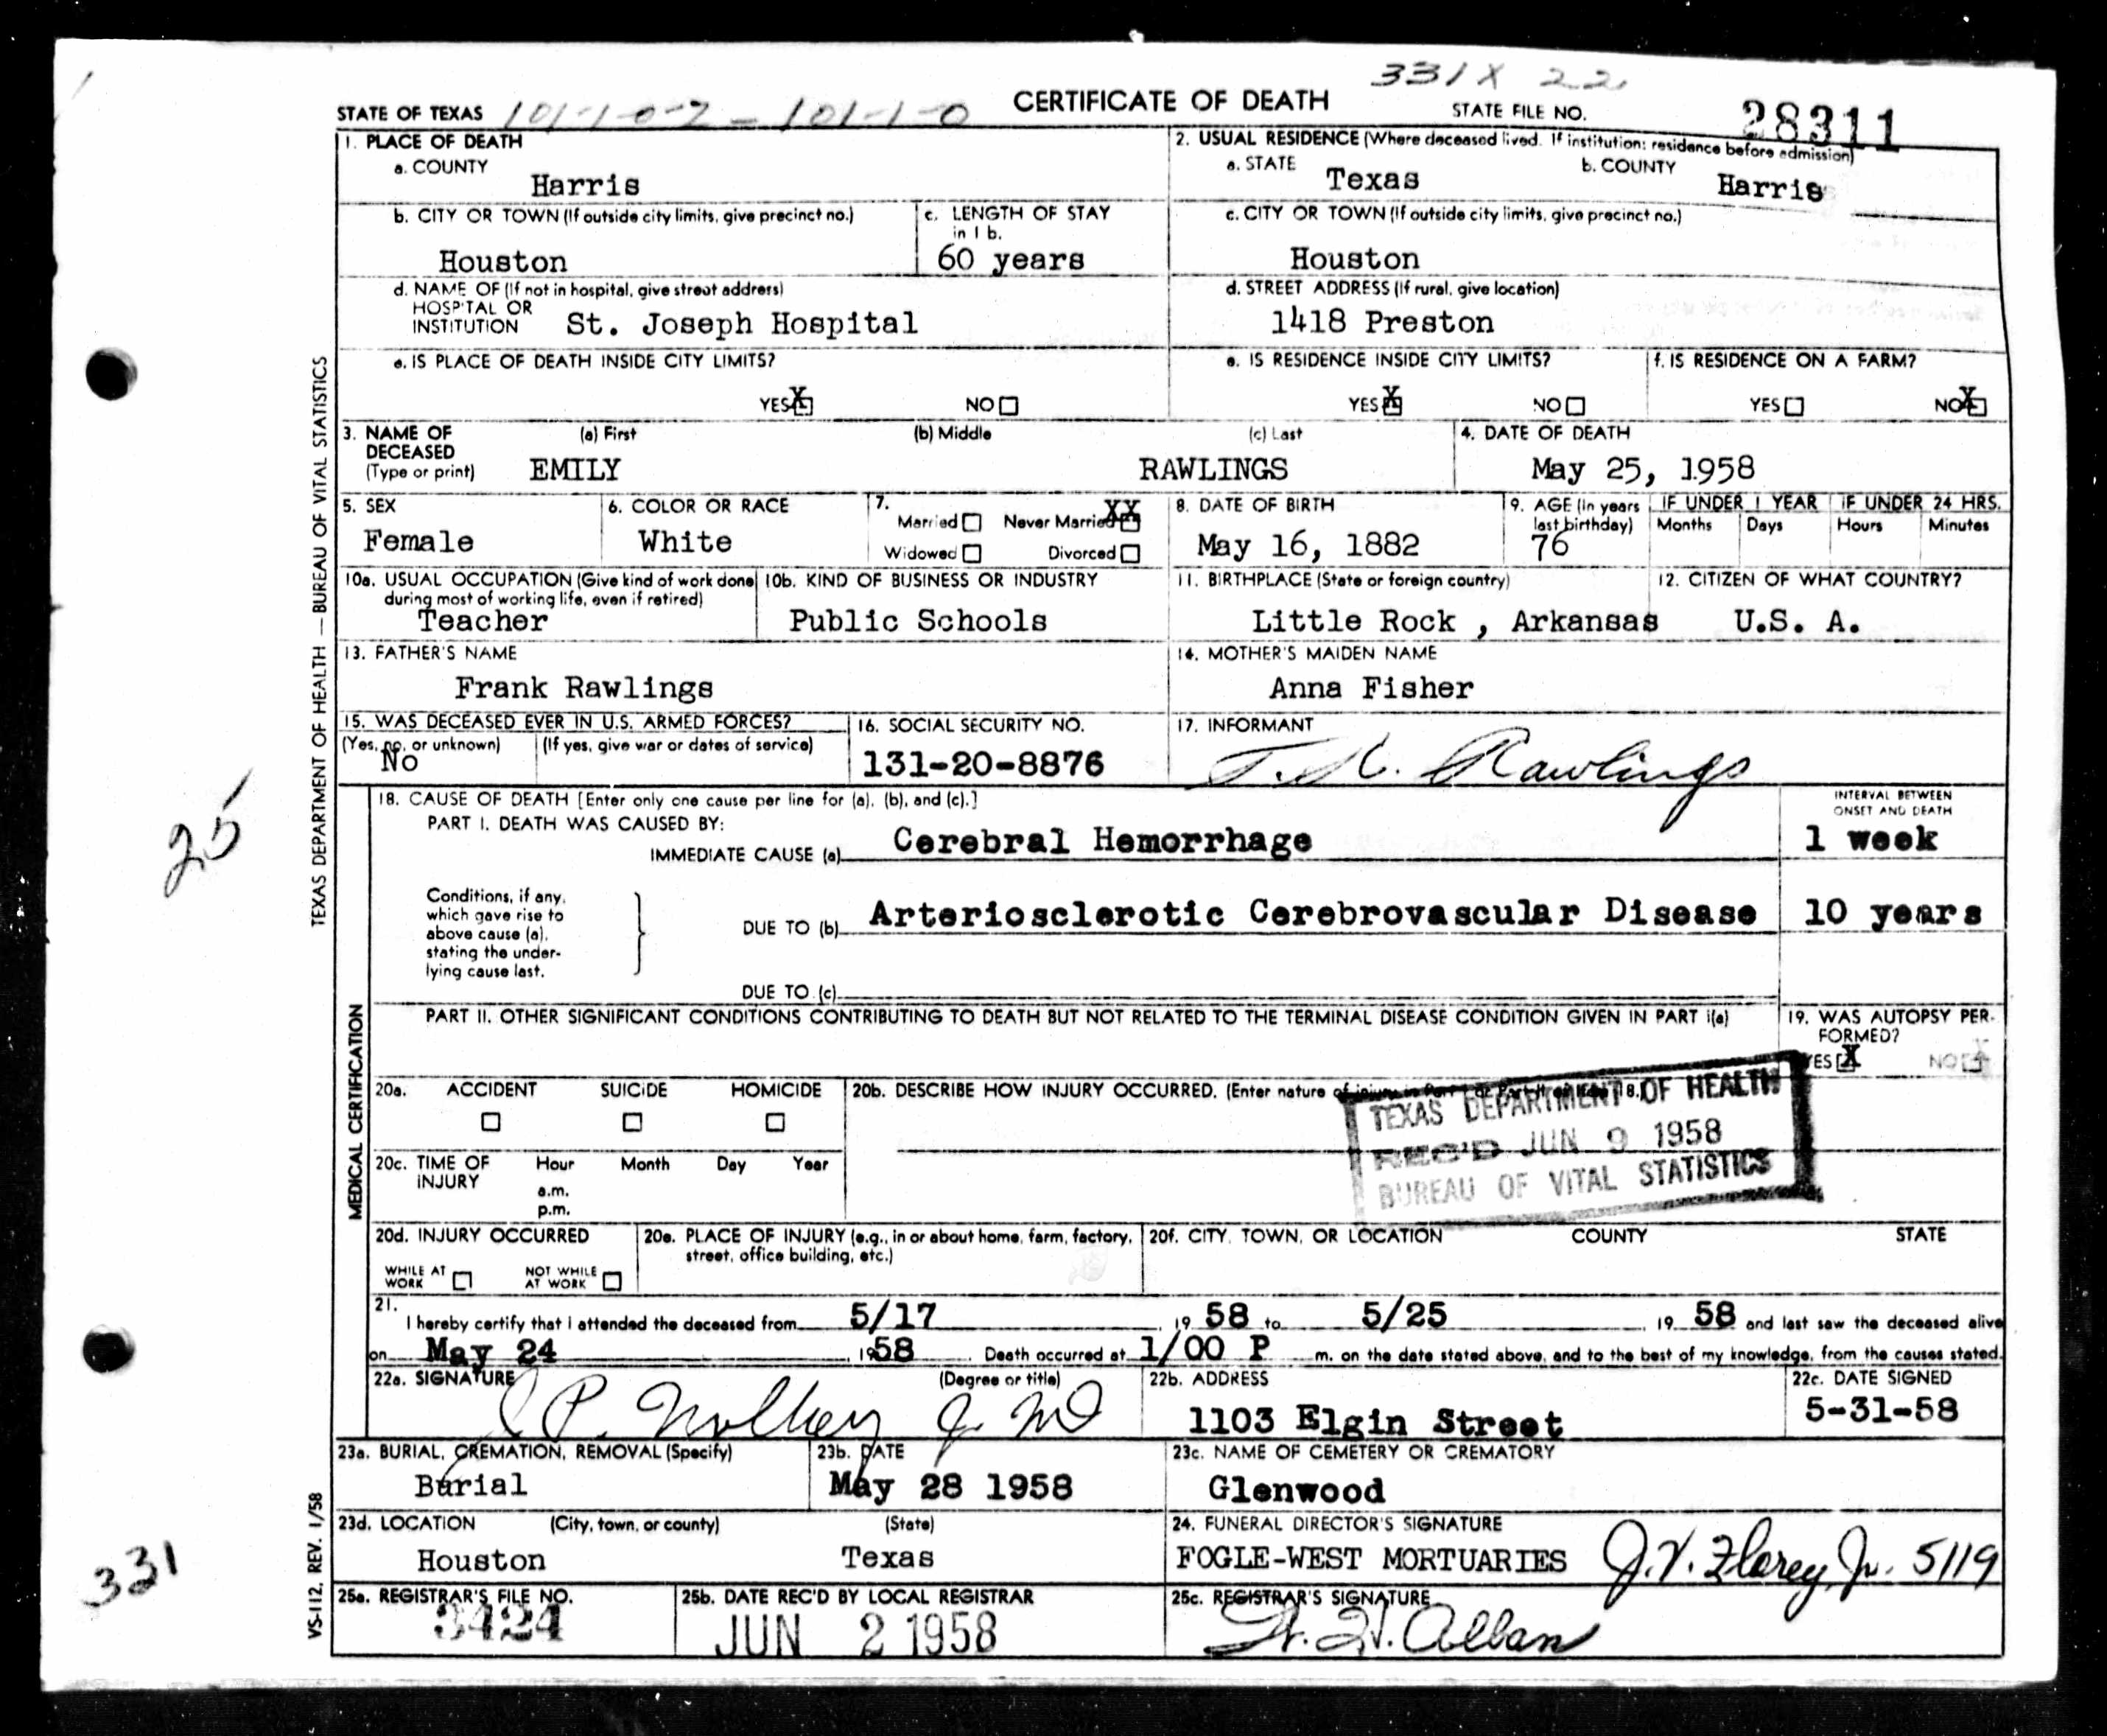 331X 22
STATE OF TEXAS 101-1-0-2 - 101-1-0 CERTIFICATE OF DEATH STATE FILE NO. 28311
1. PLACE OF DEATH
a. COUNTY Harris
2. USUAL RESIDENCE (Where deceased lived. If institution: residence before admission)
a. STATE Texas b. COUNTY Harris
b. CITY OR TOWN (If outside city limits, give precinct no.) Houston
c. LENGTH OF STAY in 1 b. 60 years
c. CITY OR TOWN (If outside city limits, give precinct no.) Houston
d. NAME OF (If not in hospital, give street address)
HOSPITAL OR
INSTITUTION St. Joseph Hospital
d. STREET ADDRESS (If rural, give location)
1418 Preston
e. IS PLACE OF DEATH INSIDE CITY LIMITS?
YES X NO
e. IS RESIDENCE INSIDE CITY LIMITS?
YES X NO
f. IS RESIDENCE ON A FARM?
YES NO X
3. NAME OF DECEASED (Type or print) (a) First (b) Middle (c) Last
EMILY RAWLINGS
4. DATE OF DEATH
May 25, 1958
5. SEX
Female
6. COLOR OR RACE
White
7. Married Never Married XX
Widowed Divorced
8. DATE OF BIRTH
May 16, 1882
9. AGE (In years last birthday)
76
IF UNDER 1 YEAR IF UNDER 24 HRS.
Months Days Hours Minutes
10a. USUAL OCCUPATION (Give kind of work done during most of working life, even if retired)
Teacher
10b. KIND OF BUSINESS OR INDUSTRY
Public Schools
11. BIRTHPLACE (State or foreign country)
Little Rock , Arkansas
12. CITIZEN OF WHAT COUNTRY?
U.S. A.
13. FATHER'S NAME
Frank Rawlings
14. MOTHER'S MAIDEN NAME
Anna Fisher
15. WAS DECEASED EVER IN U.S. ARMED FORCES?
(Yes, no, or unknown) (If yes, give war or dates of service)
No
16. SOCIAL SECURITY NO.
131-20-8876
17. INFORMANT
Rawlings
18. CAUSE OF DEATH [Enter only one cause per line for (a), (b), and (c).]
PART I. DEATH WAS CAUSED BY:
IMMEDIATE CAUSE (a) Cerebral Hemorrhage
INTERVAL BETWEEN ONSET AND DEATH
1 week
Conditions, if any,
which gave rise to
above cause (a),
stating the under-
lying cause last.
DUE TO (b) Arteriosclerotic Cerebrovascular Disease 10 years
DUE TO (c)
PART II. OTHER SIGNIFICANT CONDITIONS CONTRIBUTING TO DEATH BUT NOT RELATED TO THE TERMINAL DISEASE CONDITION GIVEN IN PART I(a)
19. WAS AUTOPSY PER-
FORMED?
YES X NO
20a. ACCIDENT SUICIDE HOMICIDE
20b. DESCRIBE HOW INJURY OCCURRED. (Enter nature of injury in Part I or Part II of item 18.)
TEXAS DEPARTMENT OF HEALTH
REC'D JUN 9 1958
BUREAU OF VITAL STATISTICS
20c. TIME OF INJURY Hour Month Day Year
a.m.
p.m.
20d. INJURY OCCURRED
WHILE AT WORK NOT WHILE AT WORK
20e. PLACE OF INJURY (e.g., in or about home, farm, factory, street, office building, etc.)
20f. CITY, TOWN, OR LOCATION COUNTY STATE
21.
I hereby certify that I attended the deceased from 5/17 19 58 to 5/25 19 58 and last saw the deceased alive
on May 24 1958 Death occurred at 1/00 P m. on the date stated above, and to the best of my knowledge, from the causes stated.
22a. SIGNATURE (Degree or title)
Jr MD
22b. ADDRESS
1103 Elgin Street
22c. DATE SIGNED
5-31-58
23a. BURIAL, CREMATION, REMOVAL (Specify)
Burial
23b. DATE
May 28 1958
23c. NAME OF CEMETERY OR CREMATORY
Glenwood
23d. LOCATION (City, town, or county) (State)
Houston Texas
24. FUNERAL DIRECTOR'S SIGNATURE
FOGLE-WEST MORTUARIES J.V. Florey, Jr. 5119
25a. REGISTRAR'S FILE NO.
3424
25b. DATE REC'D BY LOCAL REGISTRAR
JUN 2 1958
25c. REGISTRAR'S SIGNATURE
Alban
TEXAS DEPARTMENT OF HEALTH — BUREAU OF VITAL STATISTICS
MEDICAL CERTIFICATION
VS-112, REV. 1/58
25
331